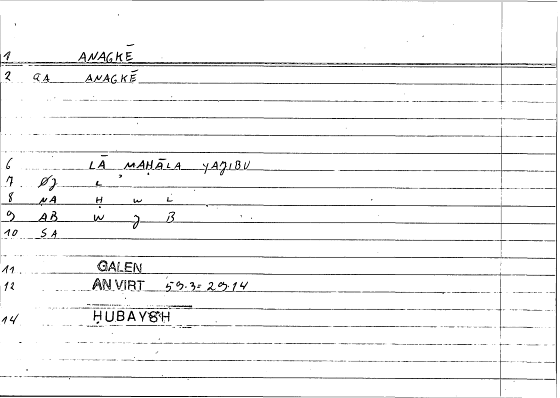 1 ANAGKĒ
2 aA ANAGKĒ
6 LĀ MAḤĀLA YAǦIBU
7 ØJ L
8 NA Ḥ W L
9 AB W J B
10 SA
11 GALEN
12 AN VIRT 59.3 = 29.14
14 HUBAYSH